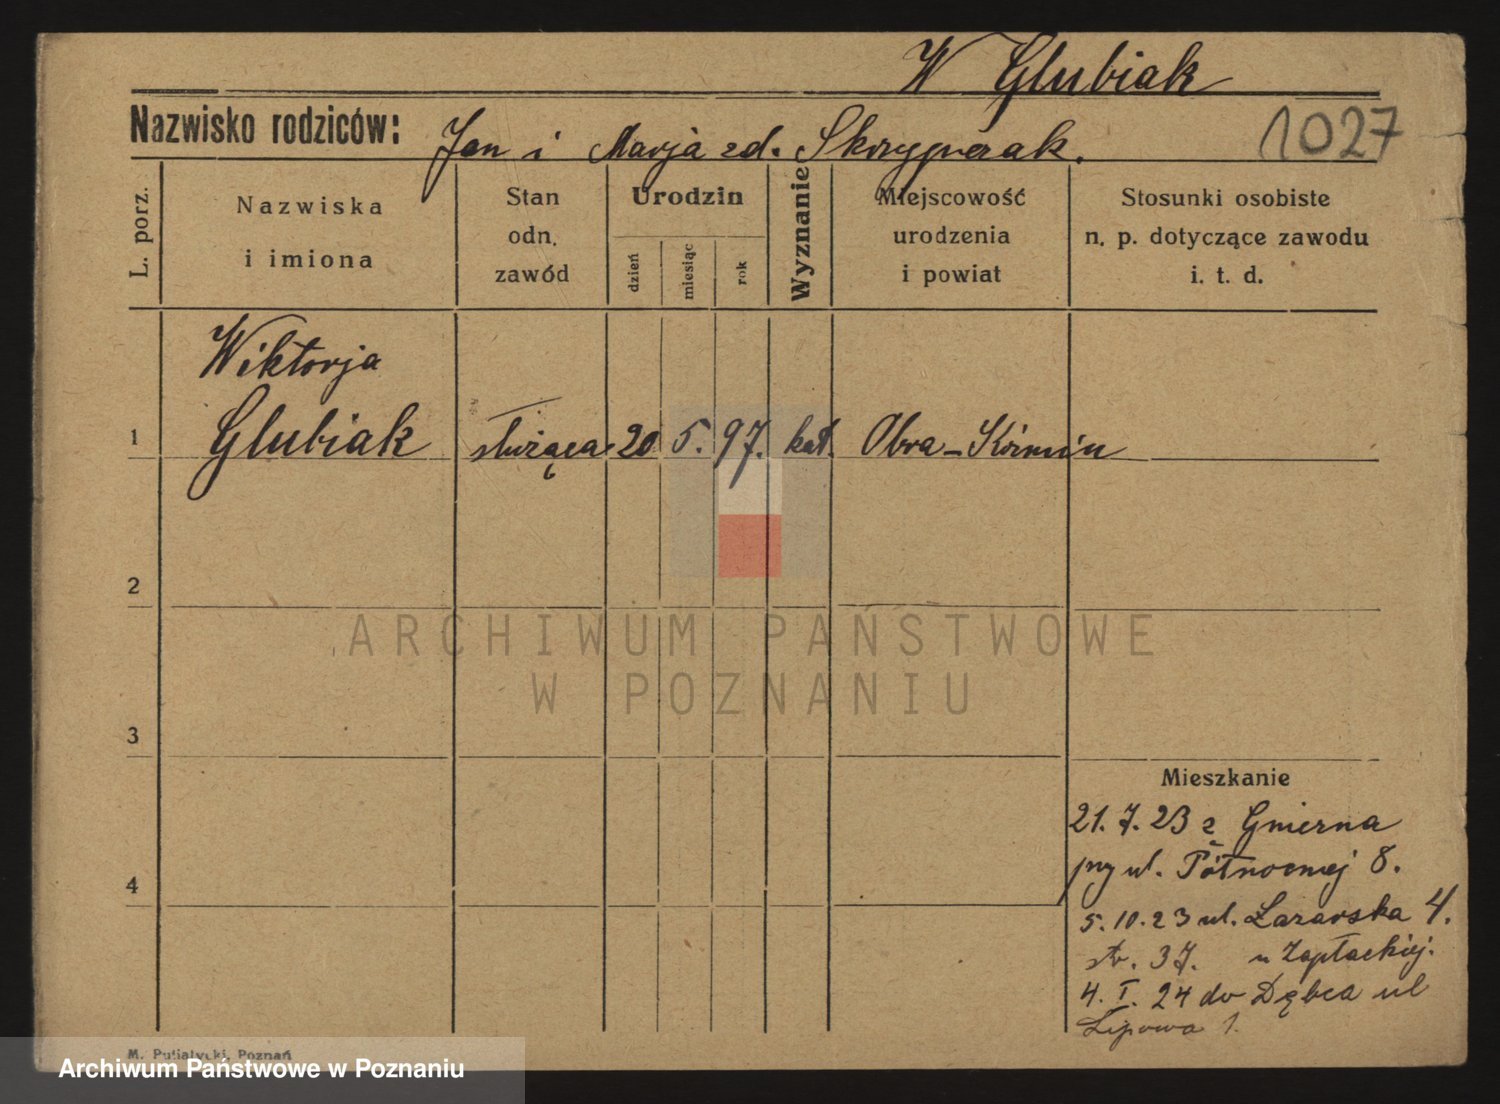 W Glubiak
Nazwisko rodziców: Jan i Marja zd. Skrzypczak.
1027
L. porz.
Nazwiska
i imiona
Stan
odn.
zawód
Urodzin
dzień
miesiąc
rok
Wyznanie
Miejscowość
urodzenia
i powiat
Stosunki osobiste
n. p. dotyczące zawodu
i. t. d.
Wiktorja
1 Glubiak służąca 20 5. 97. kat. Obra - Koźmin
2
3
4
Mieszkanie
21. 7. 23 z
przy ul. Północnej 8.
5. 10. 23 ul. Łazarska 4.
str. 37. u Zapłackiej.
4. I. 24 do Dębca ul
Lipowa 1.
M. Putiatycki, Poznań
ARCHIWUM PAŃSTWOWE
W POZNANIU
Archiwum Państwowe w Poznaniu